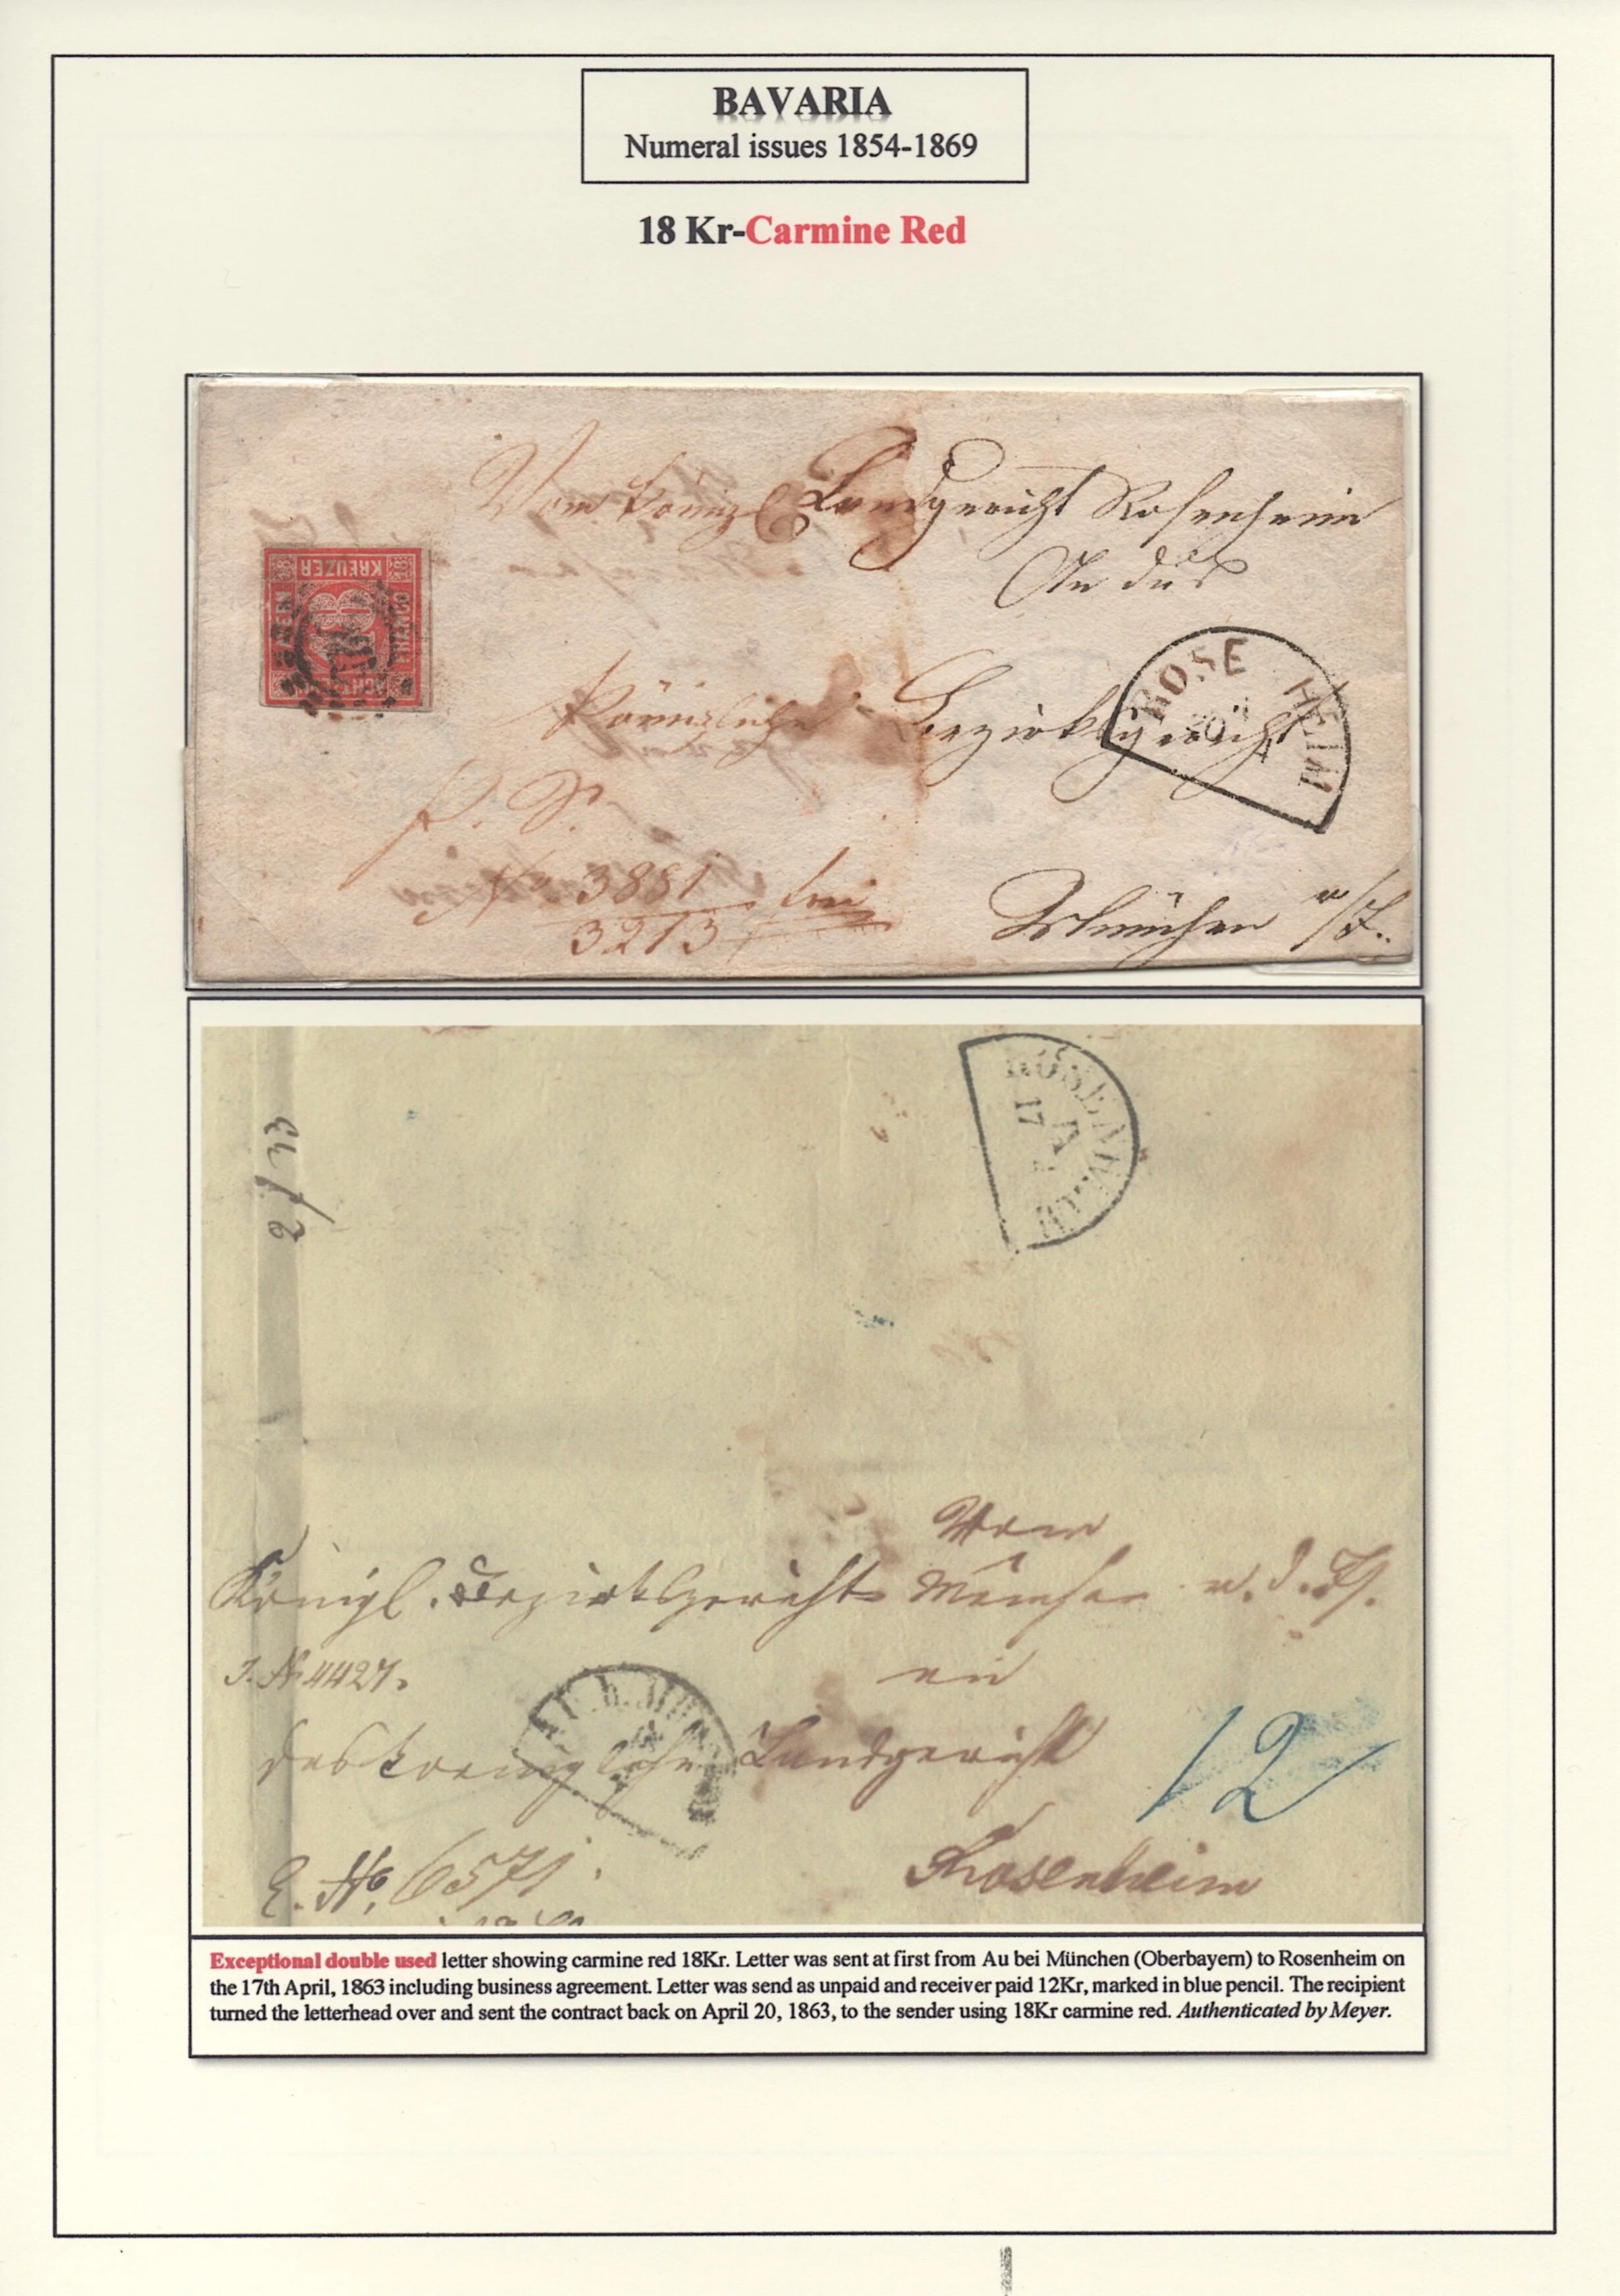 BAVARIA
Numeral issues 1854-1869
18 Kr-Carmine Red
Vom königl Landgericht Rosenheim
An das
KREUZER
18
BAYERN
FRANCO
ROSENHEIM
20
4
Königliche Bezirksgericht
P. S.
No 3881
3213
München r/I.
ROSENHEIM
17
4
2/33
Vom
Königl. Bezirksgericht München r. d. Is.
an
J. No 4427.
das koenigliche Landgericht
12
E. No. 6571.
Rosenheim
Exceptional double used letter showing carmine red 18Kr. Letter was sent at first from Au bei München (Oberbayern) to Rosenheim on
the 17th April, 1863 including business agreement. Letter was send as unpaid and receiver paid 12Kr, marked in blue pencil. The recipient
turned the letterhead over and sent the contract back on April 20, 1863, to the sender using 18Kr carmine red. Authenticated by Meyer.